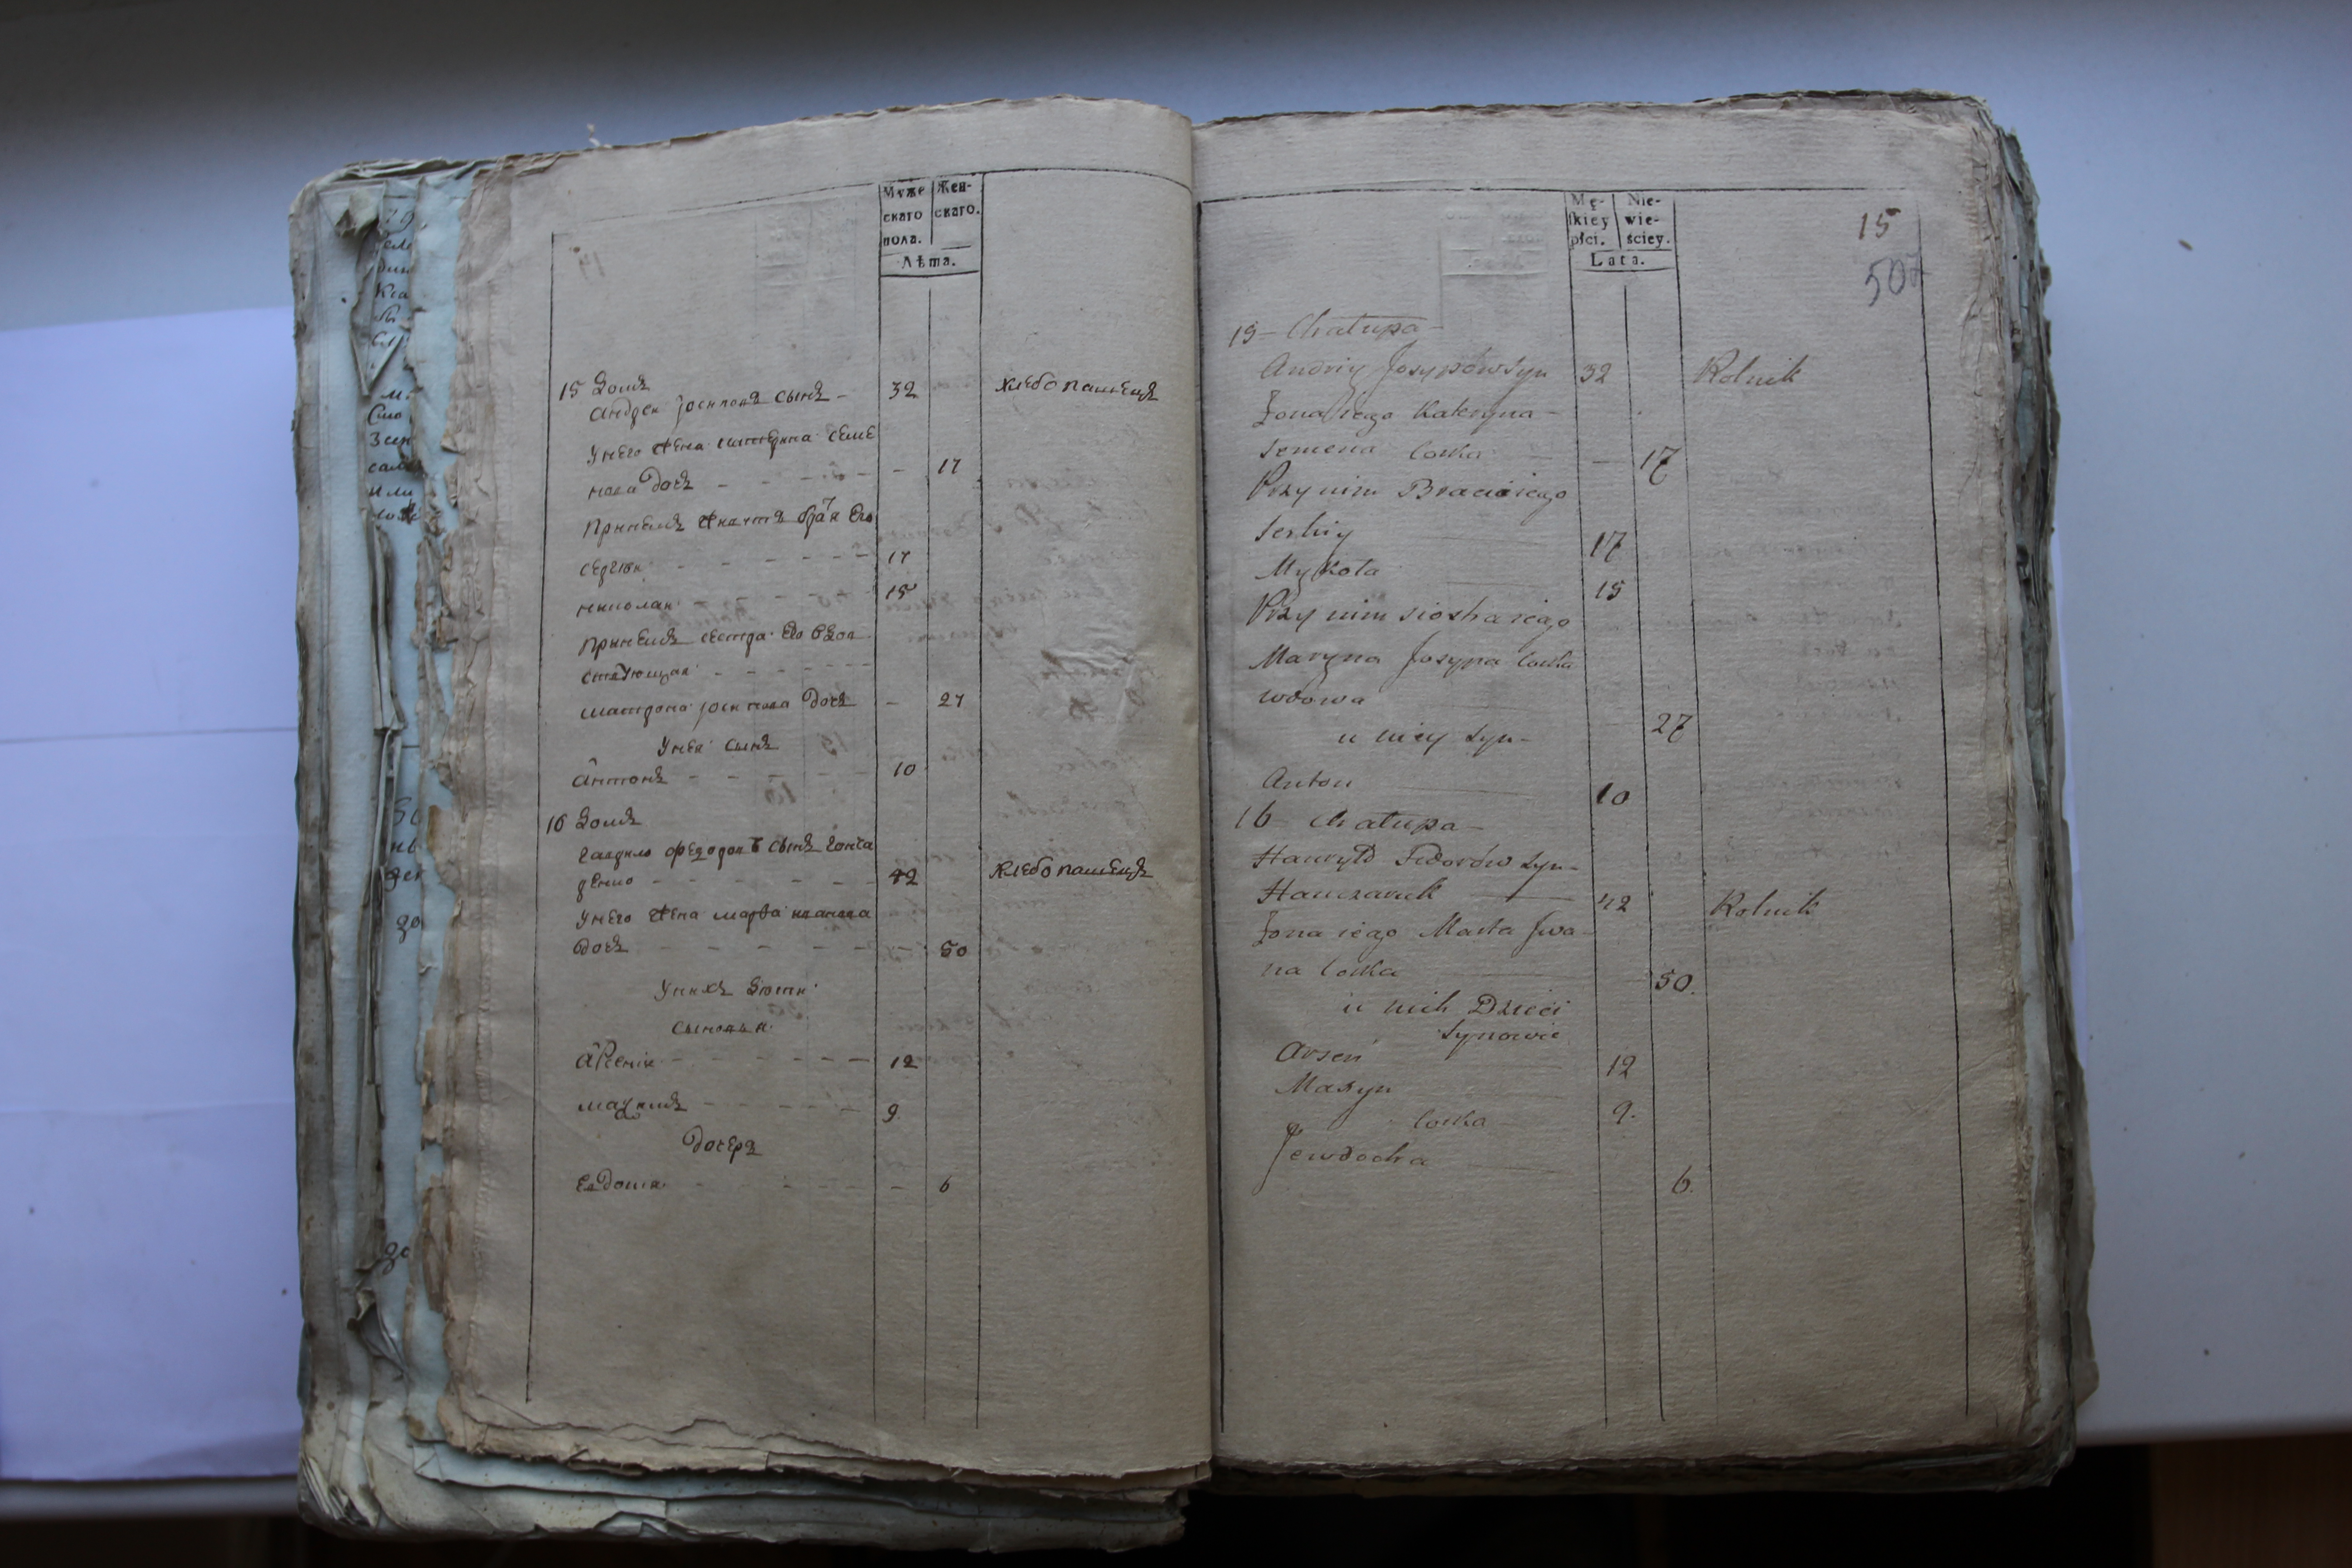 Муже
скаго
пола.
Жен-
скаго.
Лѣта.
15 Домъ
Андреи Јосиповъ сынъ - 32 хлебопашецъ
Унего жена катерина семе
нова дочъ - - - - - - 17
Принемъ живутъ братя Его
сергѣи - - - - - - 17
николаи - - - - - - 15
Принемъ сестра Его вдов
ствующая - - - - - -
матрона јосипова дочъ - 27
Унея сынъ
Антонъ - - - - - - 10
16 Домъ
Гаврило Федоровъ сынъ гонча
ренко - - - - - - 42 хлебопашецъ
Унего жена марѳа иванова
дочъ - - - - - - 50
Унихъ дѣти
сыновья
Арсеніи - - - - - - 12
маѯимъ - - - - - - 9.
дочеръ
Евдокия - - - - - - 6
Mę-
skiey
płci.
Nie-
wie-
ściey.
Lata.
15
507
15 - Chałupa -
Andriy Josypów syn 32 Rolnik
Żona iego Kateryna -
Semena Corka — 17
Przy nim Bracia iego
Serhiy 17
Mykoła 15
Przy nim siostra iego
Maryna Josypa Corka
wdowa 27
u niey syn -
Anton 10
16 Chałupa -
Hawryło Fedorów syn -
Hanczaruk — 42 Rolnik
Żona iego Marta Jwa -
na Corka 50.
u nich Dzieci
Synowie
Arsen 12
Maxym 9.
Corka
Jewdocha 6.